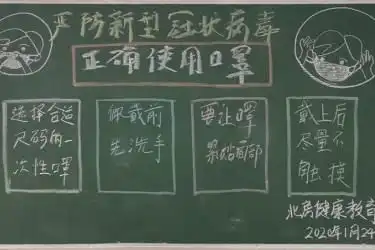 严防新型冠状病毒
正确使用口罩
选择合适
尺码的一
次性口罩
佩戴前
先洗手
要让罩
紧贴面部
戴上后
尽量不
触摸
健康教育
2020年1月24